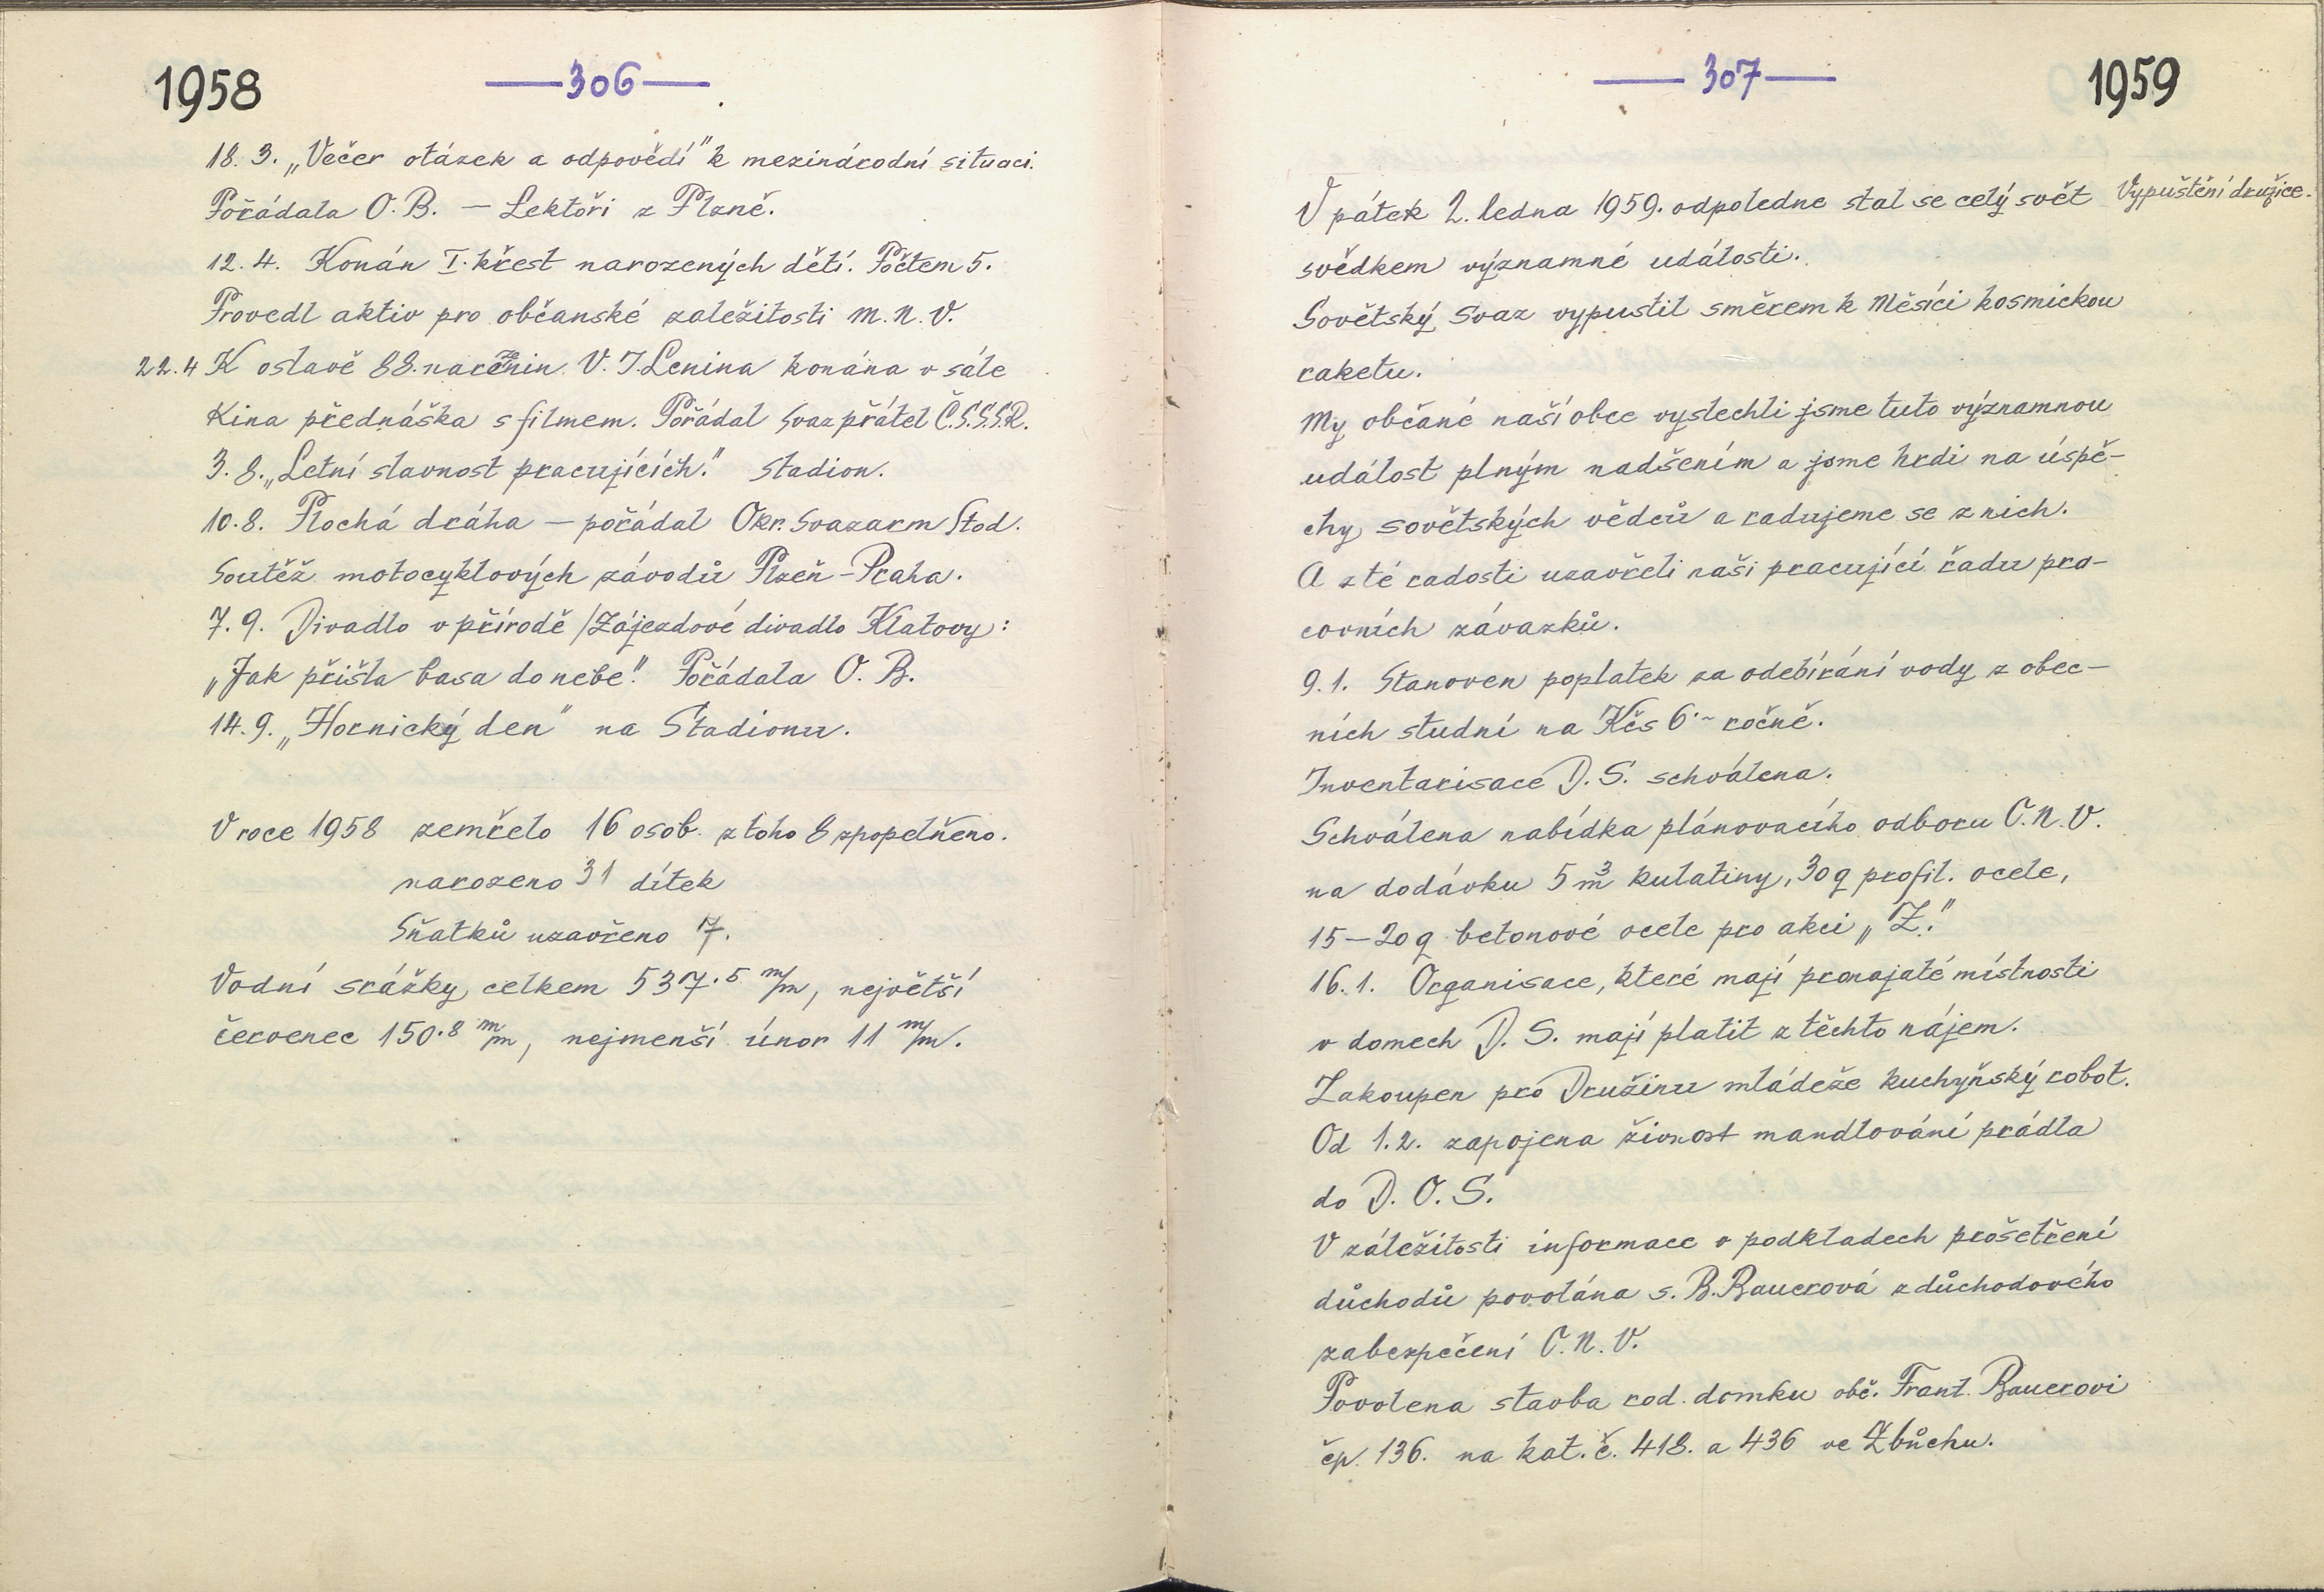 1958
— 306 —
18. 3. „Večer otázek a odpovědí" k mezinárodní situaci.
Pořádala O. B. — Lektoři z Plzně.
12. 4. Konán I. křest narozených dětí. Počtem 5.
Provedl aktiv pro občanské zaležitosti M. N. V.
22. 4 K oslavě 88. narozenin V. I. Lenina konána v sále
Kina přednáška s filmem. Pořádal Svaz přátel Č.S.S.S.R.
3. 8. „Letní slavnost pracujících." Stadion.
10. 8. Plochá dráha — pořádal Okr. Svazarm Stod.
Soutěž motocyklových závodů Plzeň - Praha.
7. 9. Divadlo v přírodě /Zájezdové divadlo Klatovy:
„Jak přišla basa do nebe." Pořádala O. B.
14. 9. „Hornický den" na Stadionu.
V roce 1958 zemřelo 16 osob. z toho 8 zpopelňeno.
narozeno 31 dítek
Sňatků uzavřeno 7.
Vodní srážky celkem 537.5 m/m, největší
červenec 150.8 m/m, nejmenší únor 11 m/m.
— 307 —
1959
V pátek 2. ledna 1959. odpoledne stal se celý svět
Vypuštění družice.
svědkem významné události.
Sovětský Svaz vypustil směrem k Měsíci kosmickou
raketu.
My občané naší obce vyslechli jsme tuto významnou
událost plným nadšením a jsme hrdi na úspě-
chy sovětských vědců a radujeme se z nich.
A z té radosti uzavřeli naši pracující řadu pra-
covních závazků.
9. 1. Stanoven poplatek za odebírání vody z obec-
ních studní na Kčs 6.- ročně.
Inventarisace D. S. schválena.
Schválena nabídka plánovacího odboru O. N. V.
na dodávku 5 m3 kulatiny, 30 q profil. ocele,
15 — 20 q betonové ocele pro akci „Z."
16. 1. Organisace, které mají pronajaté místnosti
v domech D. S. mají platit z těchto nájem.
Zakoupen pro Družinu mládeže kuchyňský robot.
Od 1. 2. zapojena živnost mandlování prádla
do D. O. S.
V záležitosti informace o podkladech prošetření
důchodů povolána s. B. Bauerová z důchodového
zabezpečení O. N. V.
Povolena stavba rod. domku obč. Frant. Bauerovi
čp. 136. na kat. č. 418. a 436 ve Zbůchu.